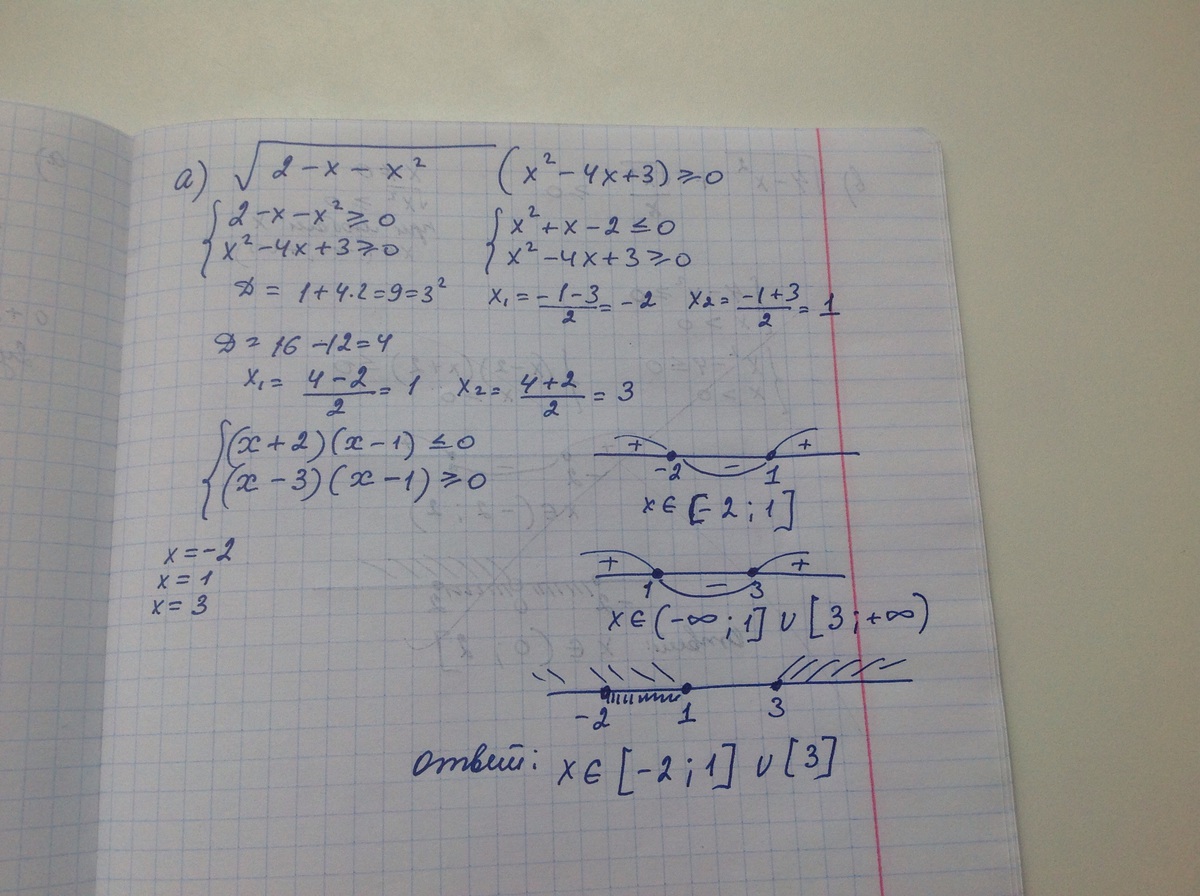 а) √(2-x-x²) (x²-4x+3)≥0
{2-x-x²≥0 {x²+x-2≤0
{x²-4x+3≥0 {x²-4x+3≥0
D = 1+4·2=9=3² x₁= (-1-3)/2 = -2 x₂= (-1+3)/2 = 1
D = 16-12=4
x₁= (4-2)/2 = 1 x₂= (4+2)/2 = 3
{(x+2)(x-1)≤0
{(x-3)(x-1)≥0
+ - +
-2 1
x∈[-2;1]
x=-2
x=1
x=3
+ - +
1 3
x∈(-∞;1]∪[3;+∞)
-2 1 3
Ответ: x∈[-2;1]∪[3]